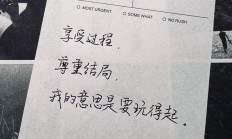 ○ MOST URGENT ○ SOME WHAT ○ NO RUSH
享受过程,
尊重结局,
我的意思是要玩得起。